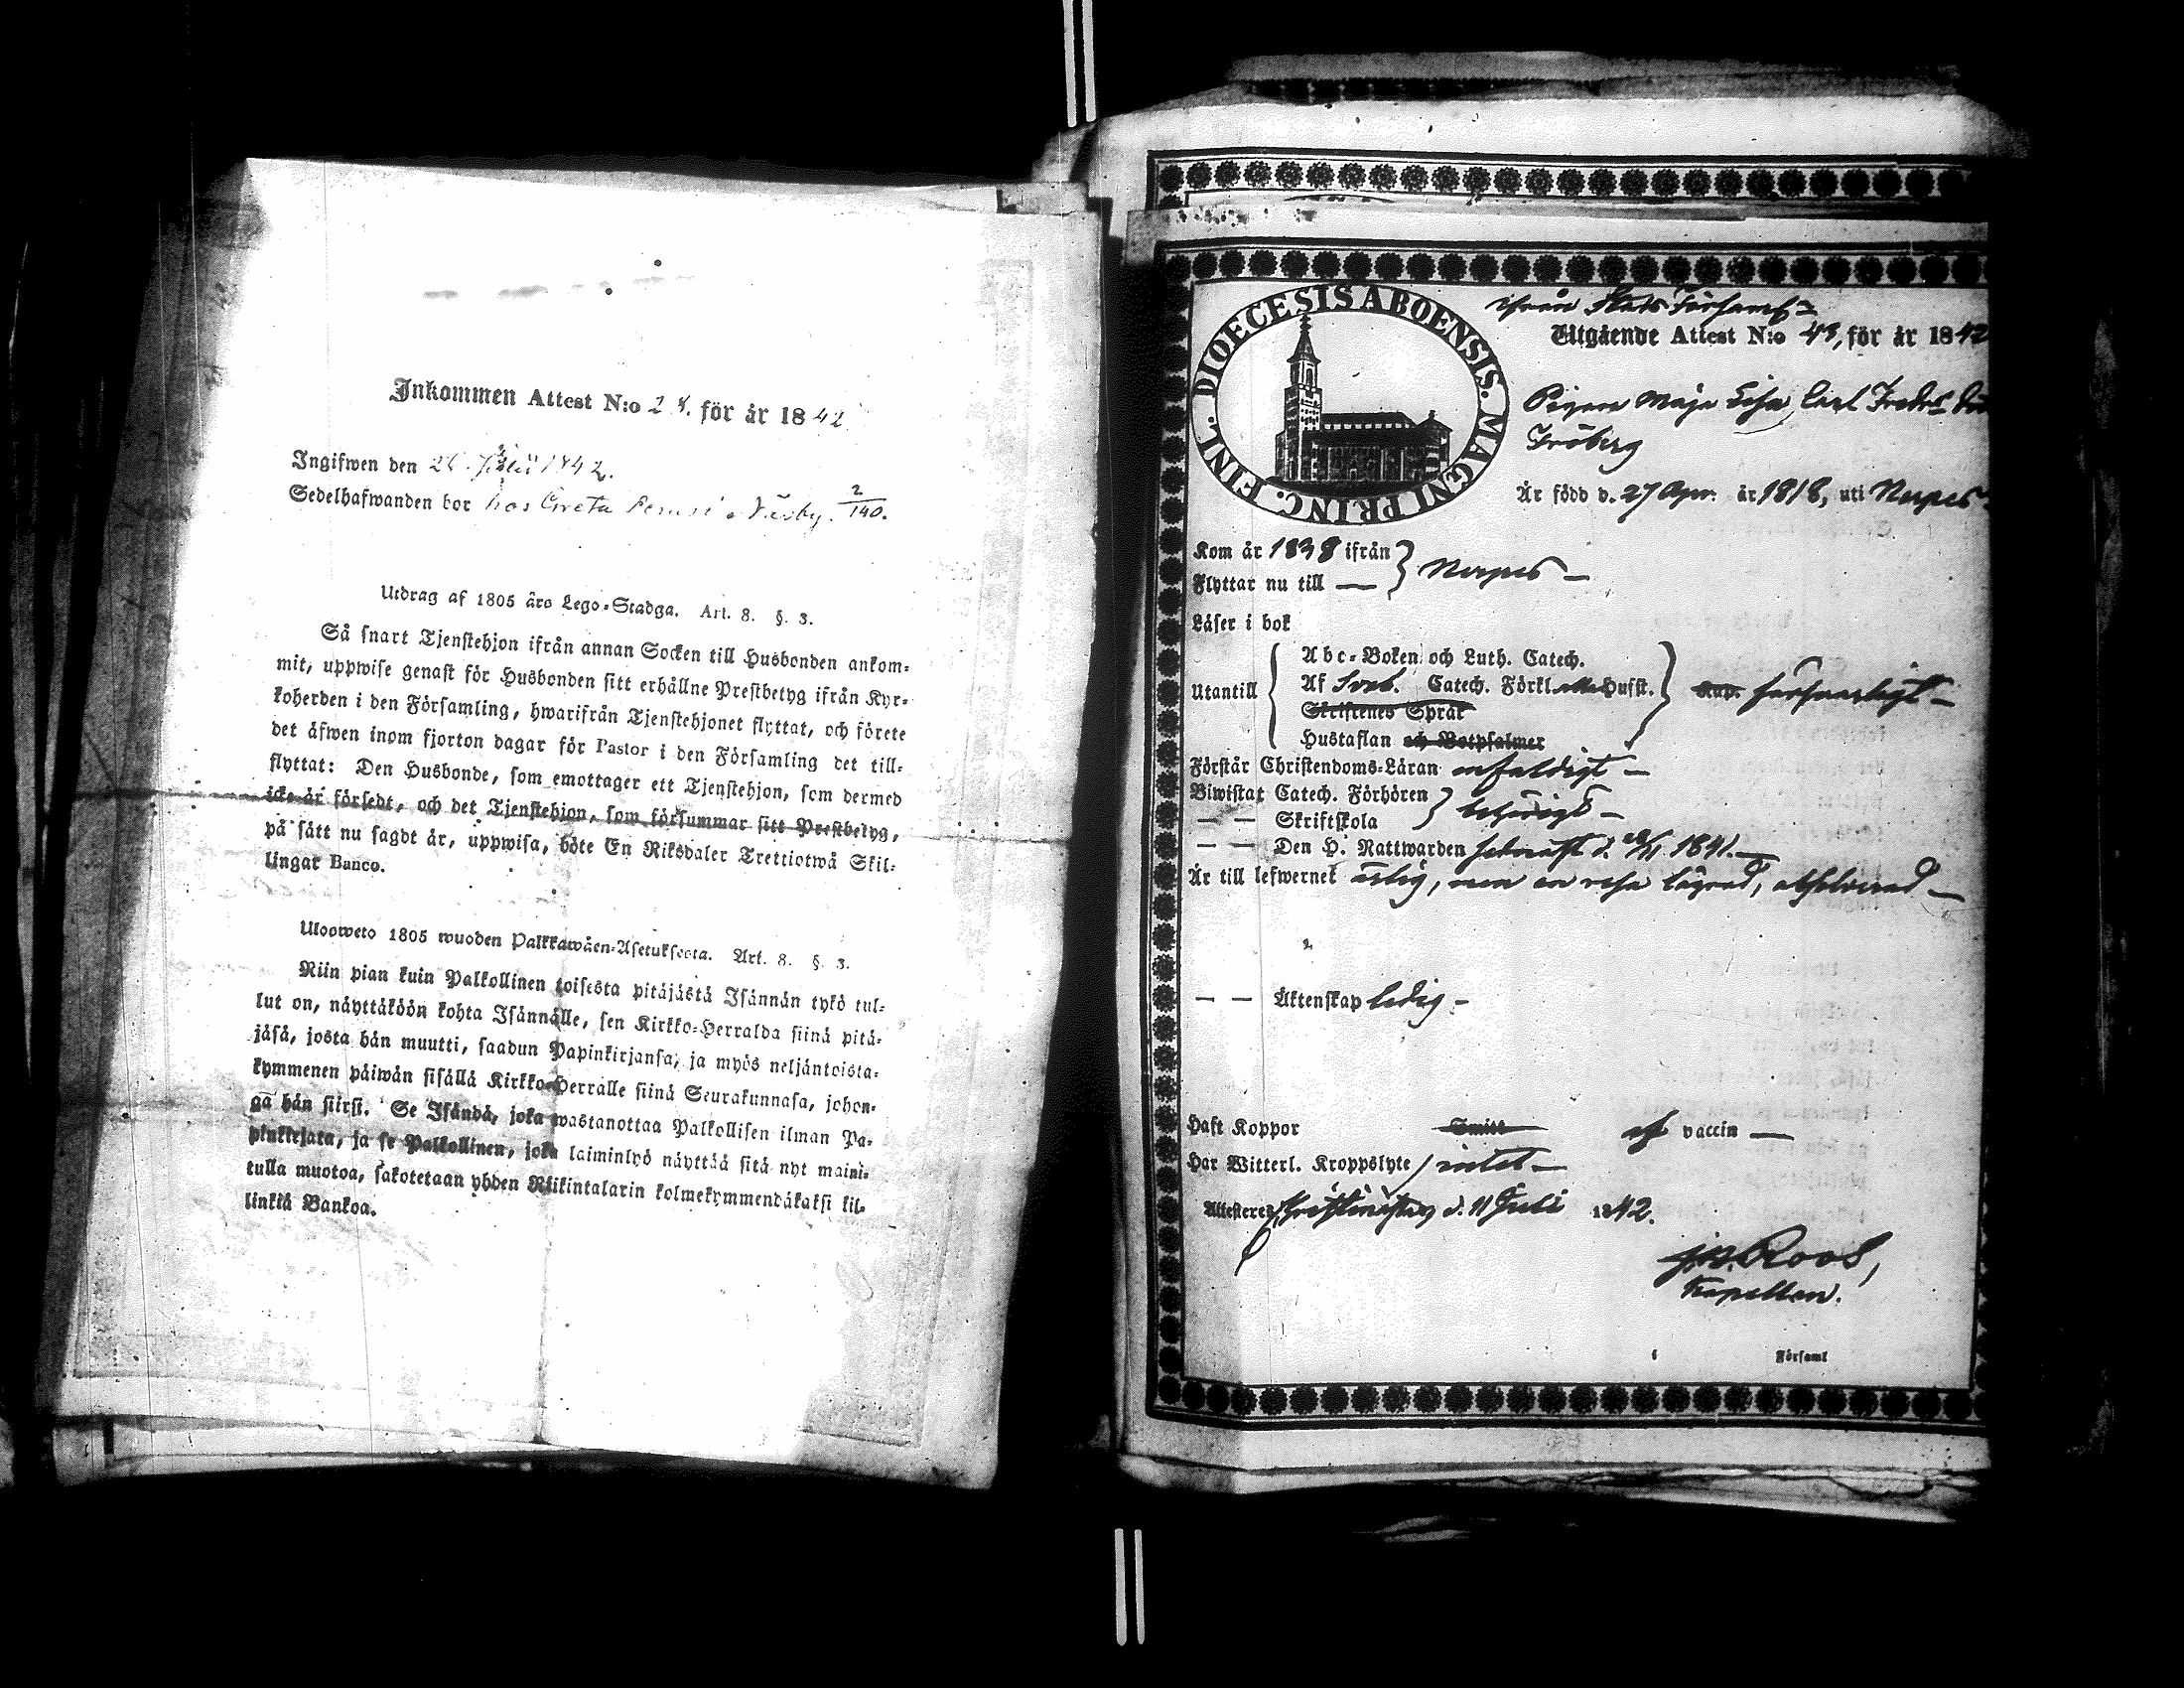 Inkommen Attest N:o 24. för år 1842
Ingifwen den 26 Julii 1842.
Sedelhafwanden bor hos Greta i 2/140.
Utdrag af 1805 års Lego-Stadga. Art. 8. §. 3.
Så snart Tjenstehjon ifrån annan Socken till Husbonden ankom-
mit, uppwise genast för Husbonden sitt erhållne Prestbetyg ifrån Kyr-
koherden i den Församling, hwarifrån Tjenstehjonet flyttat, och förete
det äfwen inom fjorton dagar för Pastor i den Församling det till-
flyttat: Den Husbonde, som emottager ett Tjenstehjon, som dermed
icke är försedt, och det Tjenstehjon, som försummar sitt Prestbetyg,
på sätt nu sagdt är, uppwisa, böte En Riksdaler Trettiotwå Skil-
lingar Banco.
Ulosweto 1805 wuoden Palkkawäen-Asetuksesta. Art. 8. §. 3.
Niin pian kuin Palkollinen toisesta pitäjästä Isännän tykö tul-
lut on, näyttäköön kohta Isännälle, sen Kirkko-Herralda siinä pitä-
jäsä, josta hän muutti, saadun Papinkirjansa, ja myös neljäntoista-
kymmenen päiwän sisällä Kirkko-Herralle siinä Seurakunnasa, johon-
ga hän siirsi. Se Isändä, joka wastanottaa Palkollisen ilman Pa-
pinkirjata, ja se Palkollinen, joka laiminlyö näyttää sitä nyt maini-
tulla muotoa, sakotetaan yhden Riikintalarin kolmekymmendäkaksi kil-
linkiä Bankoa.
DIOECESIS ABOENSIS. MAGNI PRINC. FINL.
ifrån Stads Församl-
Utgående Attest N:o 43, för år 1842
Pigan Maja Lisa Carl Fredrs
Fröberg
Är född d. 27 Apr. år 1818, uti Nerpes
Kom år 1838 ifrån
Flyttar nu till — } Nerpes —
Läser i bok
Abc-Boken och Luth. Catech.
Utantill Af Sveb. Catech. Förkl. Husst. försvarligt —
Skriftenes Språk
Hustaflan och Botpsalmer
Förstår Christendoms-Läran enfaldigt —
Biwistat Catech. Förhören
— — Skriftskola } behörigt —
— — Den H. Nattwarden sednast d. 28/11 1841. —
Är till lefwernet ärlig, men en resa lägrad, absolverad —
— — Äktenskap ledig -
Haft Koppor Smitt af vaccin —
Har Witterl. Kroppslyte intet —
Attesteres Kristinestad d. 11 Juli 1842.
J. W. Roos,
Kapellan.
Församl